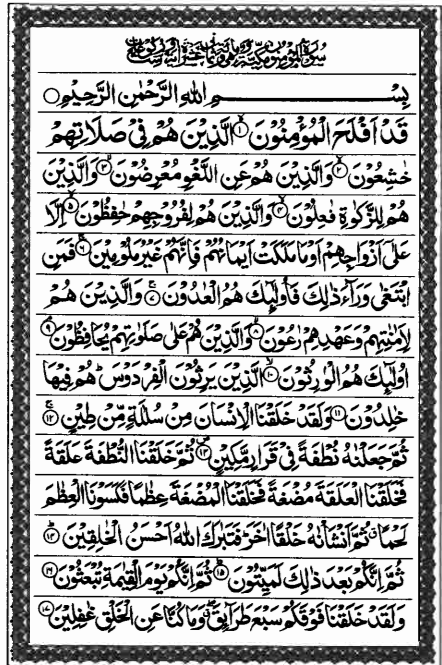 سورة المؤمنون مكية
بِسْمِ اللهِ الرَّحْمٰنِ الرَّحِيْمِ ○
قَدْ اَفْلَحَ الْمُؤْمِنُوْنَ ۙ‏﴿۱﴾ الَّذِيْنَ هُمْ فِيْ صَلَاتِهِمْ
خٰشِعُوْنَ ۙ‏﴿۲﴾ وَالَّذِيْنَ هُمْ عَنِ اللَّغْوِ مُعْرِضُوْنَ ۙ‏﴿۳﴾ وَالَّذِيْنَ
هُمْ لِلزَّكٰوةِ فٰعِلُوْنَ ۙ‏﴿۴﴾ وَالَّذِيْنَ هُمْ لِفُرُوْجِهِمْ حٰفِظُوْنَ ۙ‏﴿۵﴾ اِلَّا
عَلٰٓى اَزْوَاجِهِمْ اَوْ مَا مَلَكَتْ اَيْمَانُهُمْ فَاِنَّهُمْ غَيْرُ مَلُوْمِيْنَ ۚ‏﴿۶﴾ فَمَنِ
ابْتَغٰى وَرَآءَ ذٰلِكَ فَاُولٰٓئِكَ هُمُ الْعٰدُوْنَ ۚ‏﴿۷﴾ وَالَّذِيْنَ هُمْ
لِاَمٰنٰتِهِمْ وَعَهْدِهِمْ رَاعُوْنَ ۙ‏﴿۸﴾ وَالَّذِيْنَ هُمْ عَلٰى صَلَوٰتِهِمْ يُحَافِظُوْنَ ۘ‏﴿۹﴾
اُولٰٓئِكَ هُمُ الْوٰرِثُوْنَ ۙ‏﴿۱۰﴾ الَّذِيْنَ يَرِثُوْنَ الْفِرْدَوْسَ ؕ هُمْ فِيْهَا
خٰلِدُوْنَ ﴿۱۱﴾ وَلَقَدْ خَلَقْنَا الْاِنْسَانَ مِنْ سُلٰلَةٍ مِّنْ طِيْنٍ ۚ‏﴿۱۲﴾
ثُمَّ جَعَلْنٰهُ نُطْفَةً فِيْ قَرَارٍ مَّكِيْنٍ ۪‏﴿۱۳﴾ ثُمَّ خَلَقْنَا النُّطْفَةَ عَلَقَةً
فَخَلَقْنَا الْعَلَقَةَ مُضْغَةً فَخَلَقْنَا الْمُضْغَةَ عِظٰمًا فَكَسَوْنَا الْعِظٰمَ
لَحْمًا ۗ ثُمَّ اَنْشَاْنٰهُ خَلْقًا اٰخَرَ ؕ فَتَبٰرَكَ اللهُ اَحْسَنُ الْخٰلِقِيْنَ ؕ‏﴿۱۴﴾
ثُمَّ اِنَّكُمْ بَعْدَ ذٰلِكَ لَمَيِّتُوْنَ ؕ‏﴿۱۵﴾ ثُمَّ اِنَّكُمْ يَوْمَ الْقِيٰمَةِ تُبْعَثُوْنَ ﴿۱۶﴾
وَلَقَدْ خَلَقْنَا فَوْقَكُمْ سَبْعَ طَرَآئِقَ ۖ وَمَا كُنَّا عَنِ الْخَلْقِ غٰفِلِيْنَ ﴿۱۷﴾